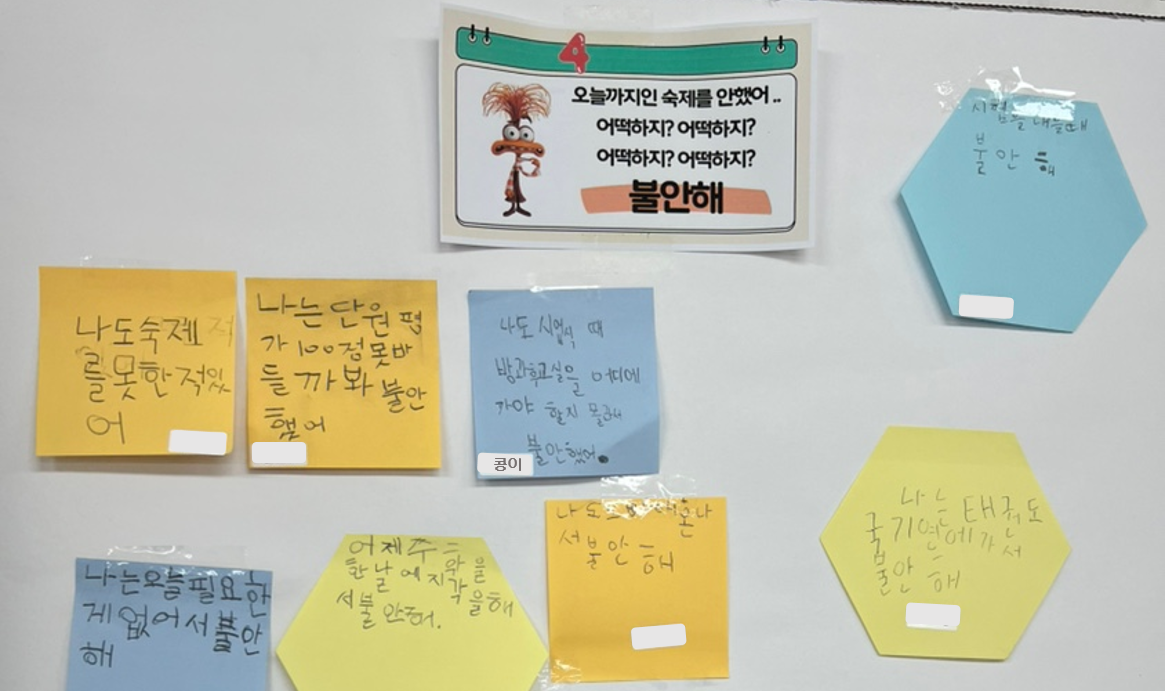 4
오늘까지인 숙제를 안했어..
어떡하지? 어떡하지?
어떡하지? 어떡하지?
불안해
때
불안해
나도숙제
를못한적있
어
나는단원평
가100점못바
들까봐불안
했어
나도 때
방과후교실을 어디에
가야 할지 몰라서
불안했어.
콩이
나도
서불안해
나는
국기 에가서
불안해
나는오늘필요한
게없어서불안
해
어제
한날에지각을해
서불안해.